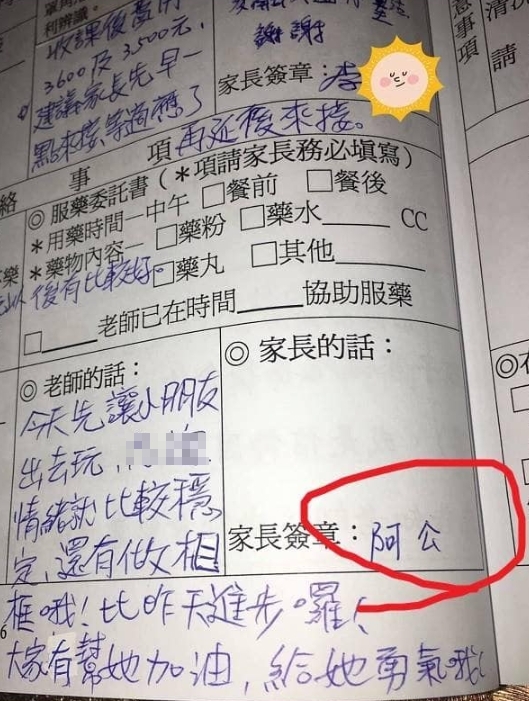 利辨識。
收課後費用
3600及3,500元,
建議家長先早一
點來接,等適應了
再延後來接。
謝謝
家長簽章：李
意事項
請
絡
事項
◎ 服藥委託書（＊項請家長務必填寫）
＊用藥時間－中午 □餐前 □餐後
＊藥物內容－ □藥粉 □藥水____ CC
□藥丸 □其他____
後有比較好。
□____老師已在時間____協助服藥
◎ 老師的話：
今天先讓小朋友
出去玩,
情緒就比較穩
定,還有做相
框哦!比昨天進步囉!
大家有幫她加油,給她勇氣哦!
◎ 家長的話：
家長簽章：阿公
6